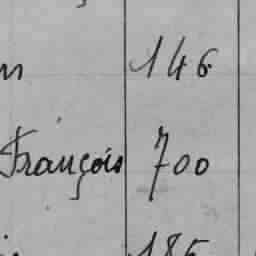 146
François 700
185